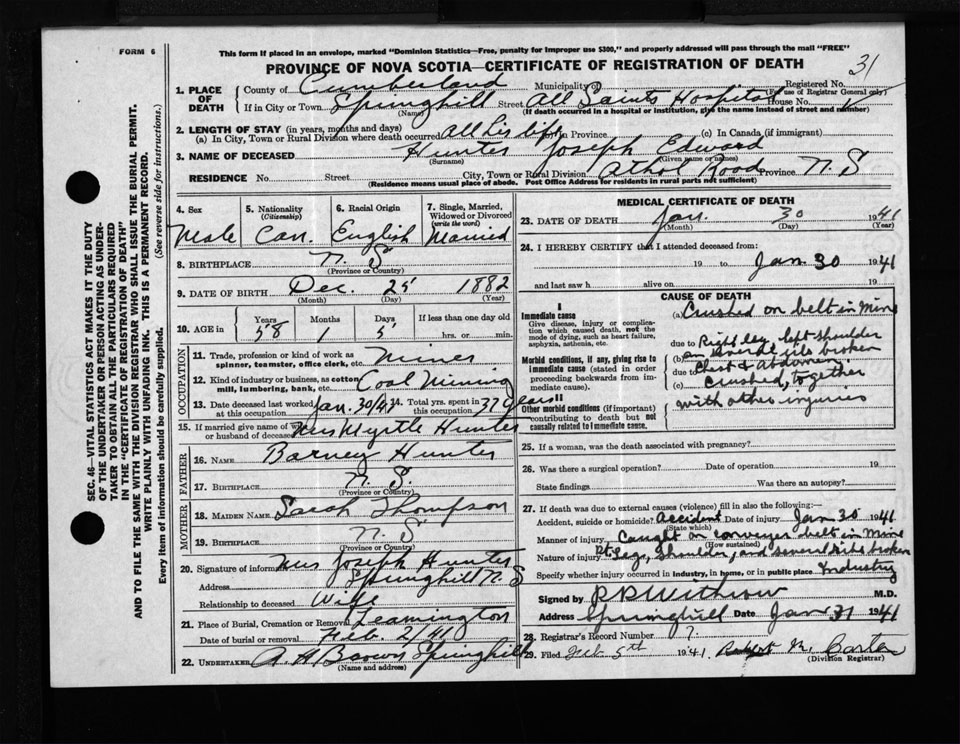 FORM 6
This form if placed in an envelope, marked "Dominion Statistics—Free, penalty for improper use $300," and properly addressed will pass through the mail "FREE"
PROVINCE OF NOVA SCOTIA—CERTIFICATE OF REGISTRATION OF DEATH
31
1. PLACE OF DEATH
County of Cumberland Municipality of Registered No.
(For use of Registrar General only)
If in City or Town Springhill Street All Saints Hospital House No.
(Name) (If death occurred in a hospital or institution, give the name instead of street and number)
2. LENGTH OF STAY (in years, months and days)
(a) In City, Town or Rural Division where death occurred all his life in Province (c) In Canada (if immigrant)
3. NAME OF DECEASED Hunter Joseph Edward
(Surname) (Given name or names)
RESIDENCE No. Street City, Town or Rural Division Athol Road Province N.S
(Residence means usual place of abode. Post Office Address for residents in rural parts not sufficient)
4. Sex Male
5. Nationality (Citizenship) Can.
6. Racial Origin English
7. Single, Married, Widowed or Divorced (write the word) Married
8. BIRTHPLACE N.S
(Province or Country)
9. DATE OF BIRTH Dec. 25 1882
(Month) (Day) (Year)
10. AGE in Years Months Days If less than one day
58 1 5 hrs. or min.
OCCUPATION
11. Trade, profession or kind of work as spinner, teamster, office clerk, etc. Miner
12. Kind of industry or business, as cotton mill, lumbering, bank, etc. Coal Mining
13. Date deceased last worked at this occupation Jan. 30/41 14. Total yrs. spent in this occupation 37 years
15. If married give name of wife or husband of deceased Mrs Myrtle Hunter
FATHER
16. NAME Barney Hunter
17. BIRTHPLACE N.S.
(Province or Country)
MOTHER
18. MAIDEN NAME Sarah Thompson
19. BIRTHPLACE N.S
(Province or Country)
20. Signature of informant Mrs Joseph Hunter
Address Springhill N.S
Relationship to deceased Wife
21. Place of Burial, Cremation or Removal Leamington
Date of burial or removal Feb. 2/41
22. UNDERTAKER A. H Brown Springhill
(Name and address)
MEDICAL CERTIFICATE OF DEATH
23. DATE OF DEATH Jan. 30 1941
(Month) (Day) (Year)
24. I HEREBY CERTIFY that I attended deceased from:
19 to Jan 30 1941
and last saw h alive on 19
CAUSE OF DEATH
I
Immediate cause
Give disease, injury or complication which caused death, not the mode of dying, such as heart failure, asphyxia, asthenia, etc.
Morbid conditions, if any, giving rise to immediate cause (stated in order proceeding backwards from immediate cause).
II
Other morbid conditions (if important) contributing to death but not causally related to immediate cause.
(a) Crushed on belt in Mine
due to Right leg, left shoulder
(b) and several ribs broken
due to Chest & Abdomen
(c) crushed, together
with other injuries
25. If a woman, was the death associated with pregnancy?
26. Was there a surgical operation? Date of operation 19
State findings Was there an autopsy?
27. If death was due to external causes (violence) fill in also the following:
Accident, suicide or homicide? Accident Date of injury Jan 30 1941
(State which)
Manner of injury Caught on conveyer belt in Mine
(How sustained)
Nature of injury Rt. Leg, Shoulder, and several ribs broken
Specify whether injury occurred in industry, in home, or in public place Industry
Signed by M.D.
Address Springhill Date Jan 31 1941
28. Registrar's Record Number 7.
29. Filed Feb 5th 1941 Carter
(Division Registrar)
SEC. 46—VITAL STATISTICS ACT MAKES IT THE DUTY OF THE UNDERTAKER OR PERSON ACTING AS UNDERTAKER TO OBTAIN ALL THE PARTICULARS REQUIRED IN THE "CERTIFICATE OF REGISTRATION OF DEATH" AND TO FILE THE SAME WITH THE DIVISION REGISTRAR WHO SHALL ISSUE THE BURIAL PERMIT.
WRITE PLAINLY WITH UNFADING INK. THIS IS A PERMANENT RECORD.
Every item of information should be carefully supplied. (See reverse side for instructions.)